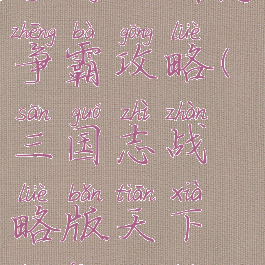 zhēng bà gōng lüè
争霸攻略(
sān guó zhì zhàn
三国志战
lüè bǎn tiān xià
略版天下